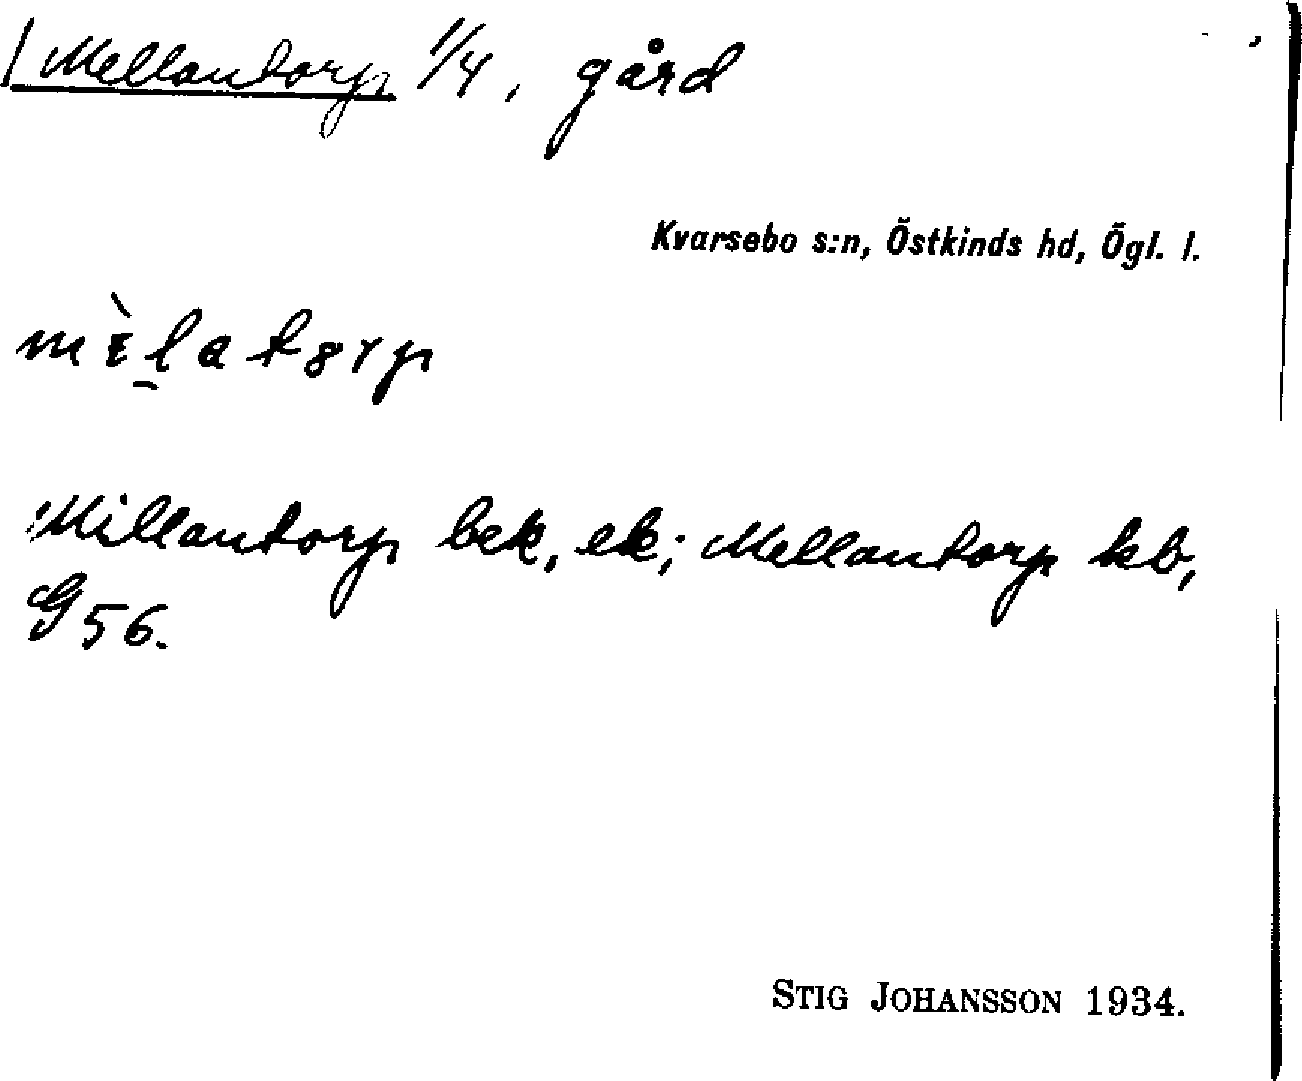 Mellantorp 1/4, gård
Kvarsebo s:n, Östkinds hd, Ögl. l.
Millantorp bek, ek; Mellantorp kb,
G 56.
STIG JOHANSSON 1934.